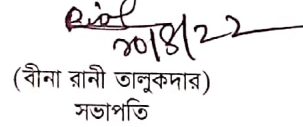 ২০/৪/22
(বীনা রানী তালুকদার)
সভাপতি